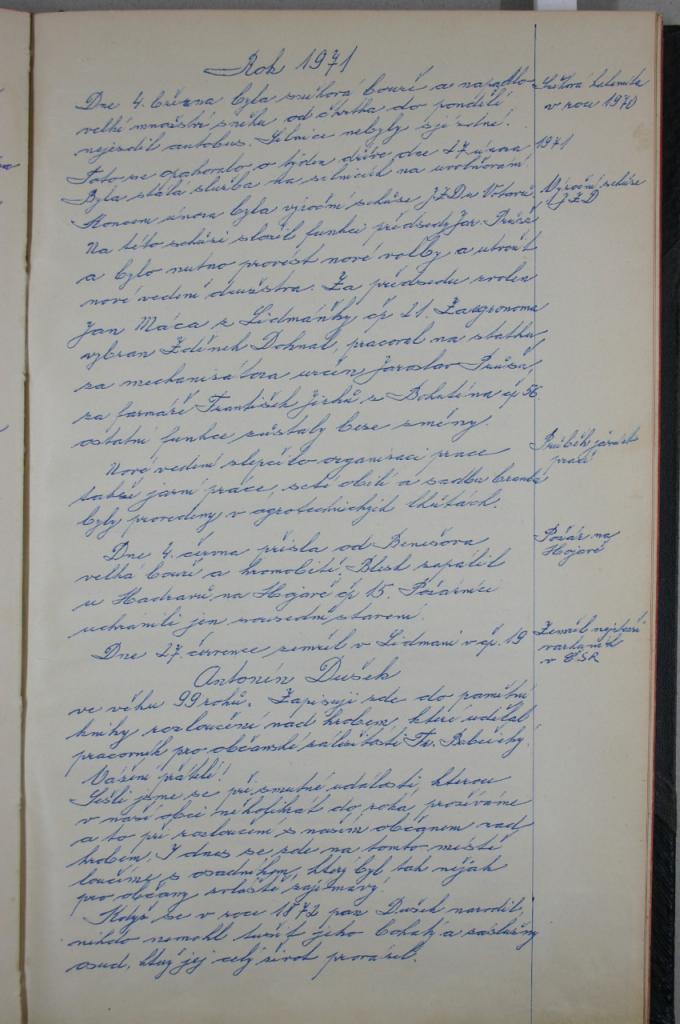 Rok 1971
Dne 4. března byla sněhová bouře a napadlo
velké množství sněhu od čtvrtka do pondělí
nejezdil autobus. Silnice nebyly sjízdné.
Toto se opakovalo o týden dříve dne 27 února
Byla stálá služba na silnicích na uvolňování
Sněhová kalamita
v roce 1970
1971
Koncem února byla výroční schůze JZD u
Na této schůzi složil funkci předseda Jar. Průša
a bylo nutno provést nové volby a utvořit
nové vedení družstva. Za předsedu zvolen
Jan Máca z Lidmáňky čp 21. Za agronoma
vybrán Zdeněk Dohnal, pracoval na statku,
za mechanizátora určen Jaroslav Průša,
za farmáře František Jirků z Bohdína čp 56
ostatní funkce zůstaly beze změny.
Výroční schůze
JZD
Nové vedení zlepšilo organizaci práce
takže jarní práce, setí obilí a sadba brambor
byly provedeny v agrotechnických lhůtách.
Průběh jarních
prací
Dne 4. června přišla od Benešova
velká bouře a hromobití. Blesk zapálil
u Hadravů na Hojavě čp 15. Požárníci
uchránili jen sousední stavení.
Požár na
Hojavě
Dne 27. července zemřel v Lidmani v čp. 19
Antonín Dušek
ve věku 99 roků. Zapisuji zde do pamětní
knihy rozloučení nad hrobem, které udělal
pracovník pro občanské záležitosti Fr.
Zemřel nejstarší
v ČSR
Vážení přátelé!
Sešli jsme se při smutné události, kterou
v naší obci několikrát do roka prožíváme
a to při rozloučení s naším občanem nad
hrobem. I dnes se zde na tomto místě
loučíme s osadníkem, který byl tak nějak
pro občany zvláště zajímavý.
Když se v roce 1872 pan Dušek narodil,
nikdo nemohl tušit jeho bohatý a záslužný
osud, který jej celý život provázel.